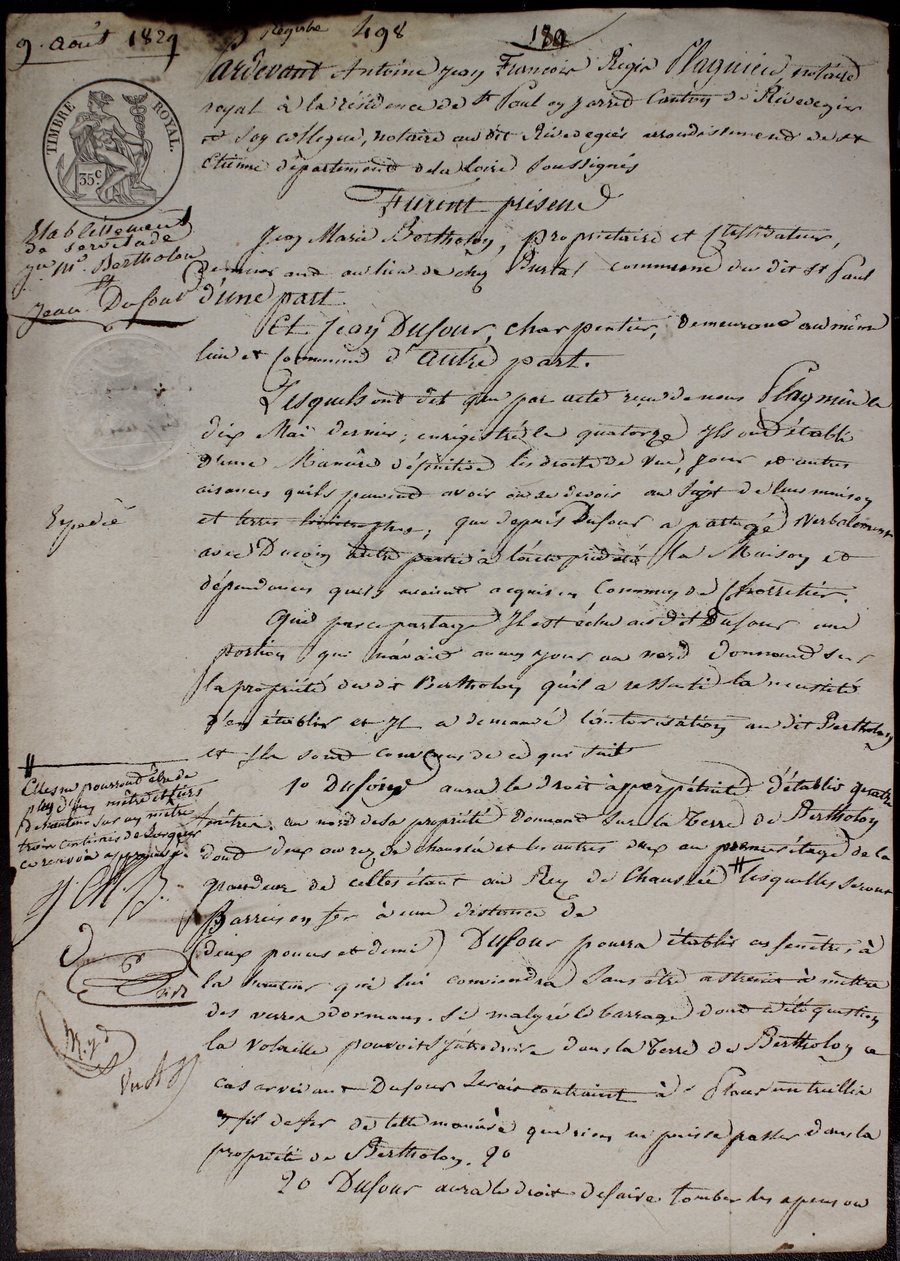 9. août 1829
Registre 498
189
Pardevant Antoine Jean François Régis Plagnieu, notaire
royal à la résidence de St Paul en Jarred Canton de Rivedegier
et son collegue, notaire au dit Rivedegier arrondissement de St
Etienne département de la Loire soussignés
TIMBRE ROYAL.
35c
Furent présens
Etablissement
de servitude
Mr Berthollon
et
Jean Dufour
Jean Marie Bertholon, propriétaire et
demeurant au lieu de chez commune du dit St Paul
d'une part.
Et Jean Dufour, charpentier, demeurant au même
lieu et commune d'autre part.
Lesquels ont dit que par acte reçu de nous le
dix Mai dernier, enregistré le quatorze Ils ont établi
d'une Manière définitive les droits de Vue, jour et autres
aisances qu'ils peuvent avoir ou se devoir au sujet de leurs maison
et terres limitrophes; que depuis Dufour a partagé Verbalement
Expédié
avec autre partie à la Maison et
dépendances qu'ils avaient acquis en Commun de
Que par ce partage Il est échu au dit Dufour une
portion qui n'avait aucun jour au nord donnant sur
la propriété du dit Bertholon qu'il a ressenti la necessité
d'en établir et Il a demandé l'autorisation au dit Bertholon
et Ils sont convenus de ce qui suit
1o Dufour aura le droit à perpétuité d'établir quatre
fenêtres au nord de sa propriété donnant sur la terre de Bertholon
dont deux au rez de chaussée et les autres deux au premier étage de la
grandeur de celles étant au Rez de Chaussée # lesquelles seront
# Elles ne pourront être de
plus d'un mètre et tiers
de hauteur sur un mètre
trois centimes de largeur
ce renvoi approuvé
Barries en fer à une distance de
(deux pouces et demi) Dufour pourra établir ces fenêtres, à
la hauteur qui lui conviendra sans être astreint à mettre
des verres dormans. Si malgré le barrage dont a été question
la Volaille pouvoit s'introduire dans la terre de Bertholon ce
cas arrivant Dufour serait contraint à placer un treillis
en fil de fer de telle manière que rien ne puisse passer dans la
propriété de Bertholon.
2o Dufour aura le droit de faire tomber les